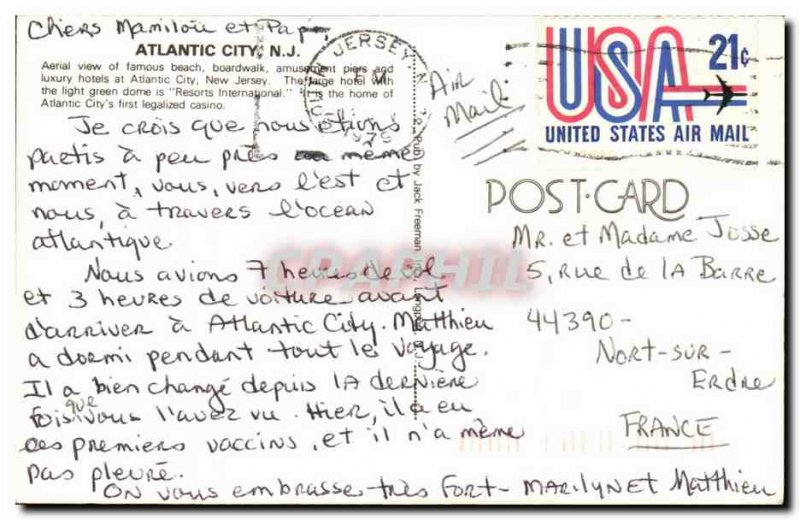 Chers Mamilou et Pap
ATLANTIC CITY, N.J.
Aerial view of famous beach, boardwalk, amusement piers and
luxury hotels at Atlantic City, New Jersey. The large hotel with
the light green dome is "Resorts International." It is the home of
Atlantic City's first legalized casino.
Je crois que nous étions
partis à peu près au même
moment, vous, vers l'est et
nous, à travers l'océan
atlantique.
Nous avions 7 heures de vol
et 3 heures de voiture avant
d'arriver à Atlantic City. Matthieu
a dormi pendant tout le voyage.
Il a bien changé depuis la dernière
fois que vous l'avez vu. Hier, il a eu
ces premiers vaccins, et il n'a même
pas pleuré.
On vous embrasse très fort - Marilyn et Matthieu
JERSEY
PM
1979
Pub by Jack Freeman, Inc. Longport
Air
Mail
USA 21¢
UNITED STATES AIR MAIL
POST-CARD
Mr. et Madame Josse
5, Rue de la Barre
44390 -
Nort-sur-
Erdre
France
CPAPHIL